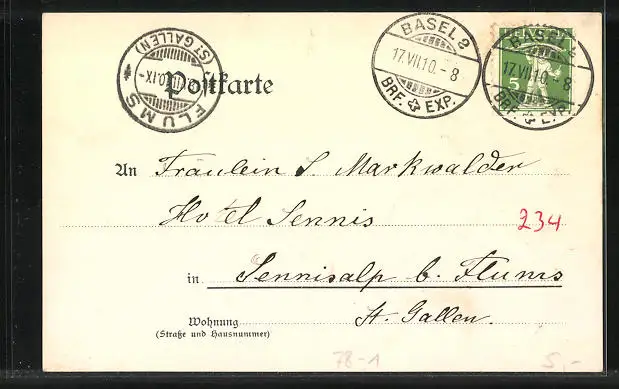 BASEL 2
17.VII.10.-8
BRF. EXP.
BASEL 2
17.VII.10.-8
BRF. EXP.
5
FLUMS
(ST GALLEN)
Postkarte
An Fräulein S. Markwalder
Hotel Sennis
234
in Sennisalp b. Flums
St. Gallen.
Wohnung
(Straße und Hausnummer)
78-1
5,-